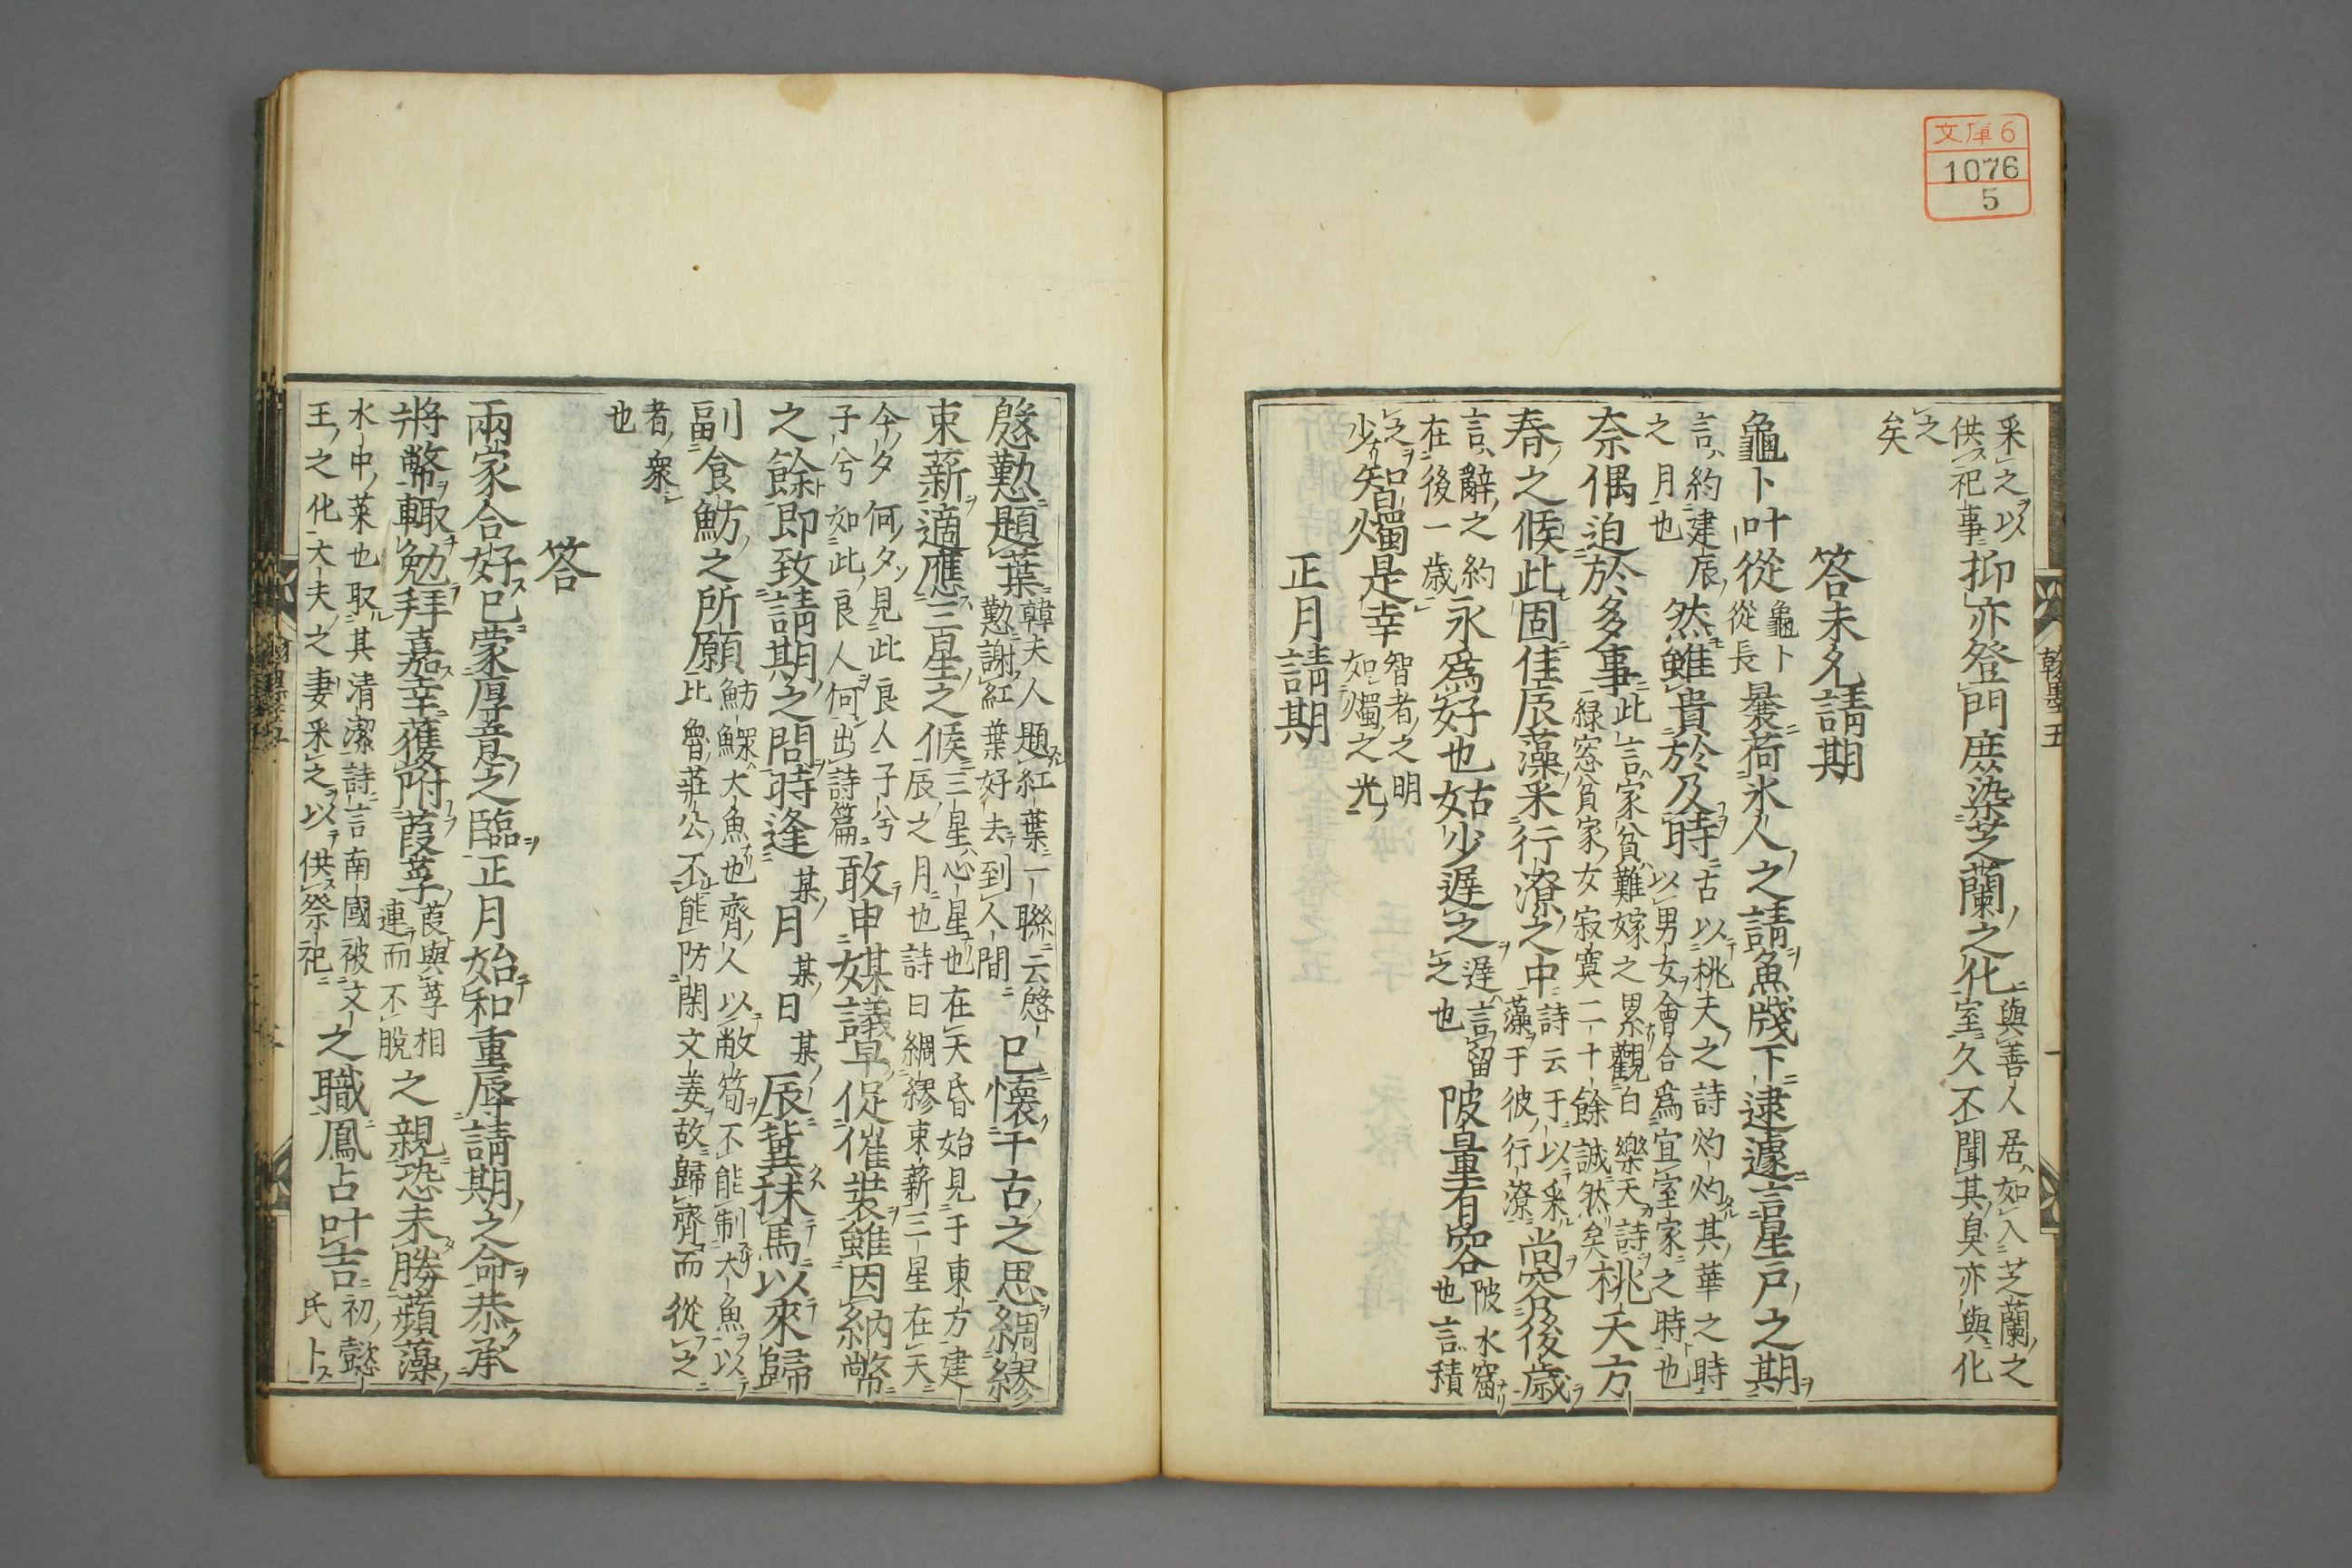 文庫6
1076
5
翰墨五
采之以
供祀事
抑亦登門庶染芝蘭之化
與善人居如入芝蘭之
室久不聞其臭亦與化
之
矣
答未允請期
龜卜叶從
龜卜
從長
曩荷氷人之請魚牋下逮遽言星戸之期
言約建辰
之月也
然雖貴於及時
古以桃夭之詩灼灼其華之時
以男女會合爲宜室家之時也
奈偶迫於多事
此言家貧難嫁之累觀白樂天詩
緑窓貧家女寂寞二十餘誠然矣
桃夭方
春之候此固佳辰藻采行潦之中
詩云于以采
藻于彼行潦
尚容後歳
言辭之約
在後一歳
永爲好也姑少遲之
遲言留
之也
陂量有容
陂水窟
也言積
之
少
智燭是幸
智者之明
如燭之光
正月請期
慇懃題葉
韓夫人題紅葉一聯云慇
懃謝紅葉好去到人間
已懷千古之思綢繆
束薪適應三星之候
三星心星也在天昏始見于東方建
辰之月也詩曰綢繆束薪三星在天
今夕何夕見此良人子兮
子兮如此良人何出詩篇
敢申媒議卓促催裝雖因納幣
之餘即致請期之問時逢某月某日某辰冀抹馬以來歸
副食魴之所願
魴鰥大魚也齊人以敝笱不能制大魚以
比魯莊公不能防閑文姜故歸齊而從之
者衆
也
答
兩家合好已蒙厚意之臨正月始和重辱請期之命恭承
將幣輙勉拜嘉幸獲附葭莩
葭與莩相
連而不脫
之親恐未勝蘋藻
水中菜也取其清潔詩言南國被文
王之化大夫之妻采之以供祭祀
之職鳳占叶吉
初懿
氏卜